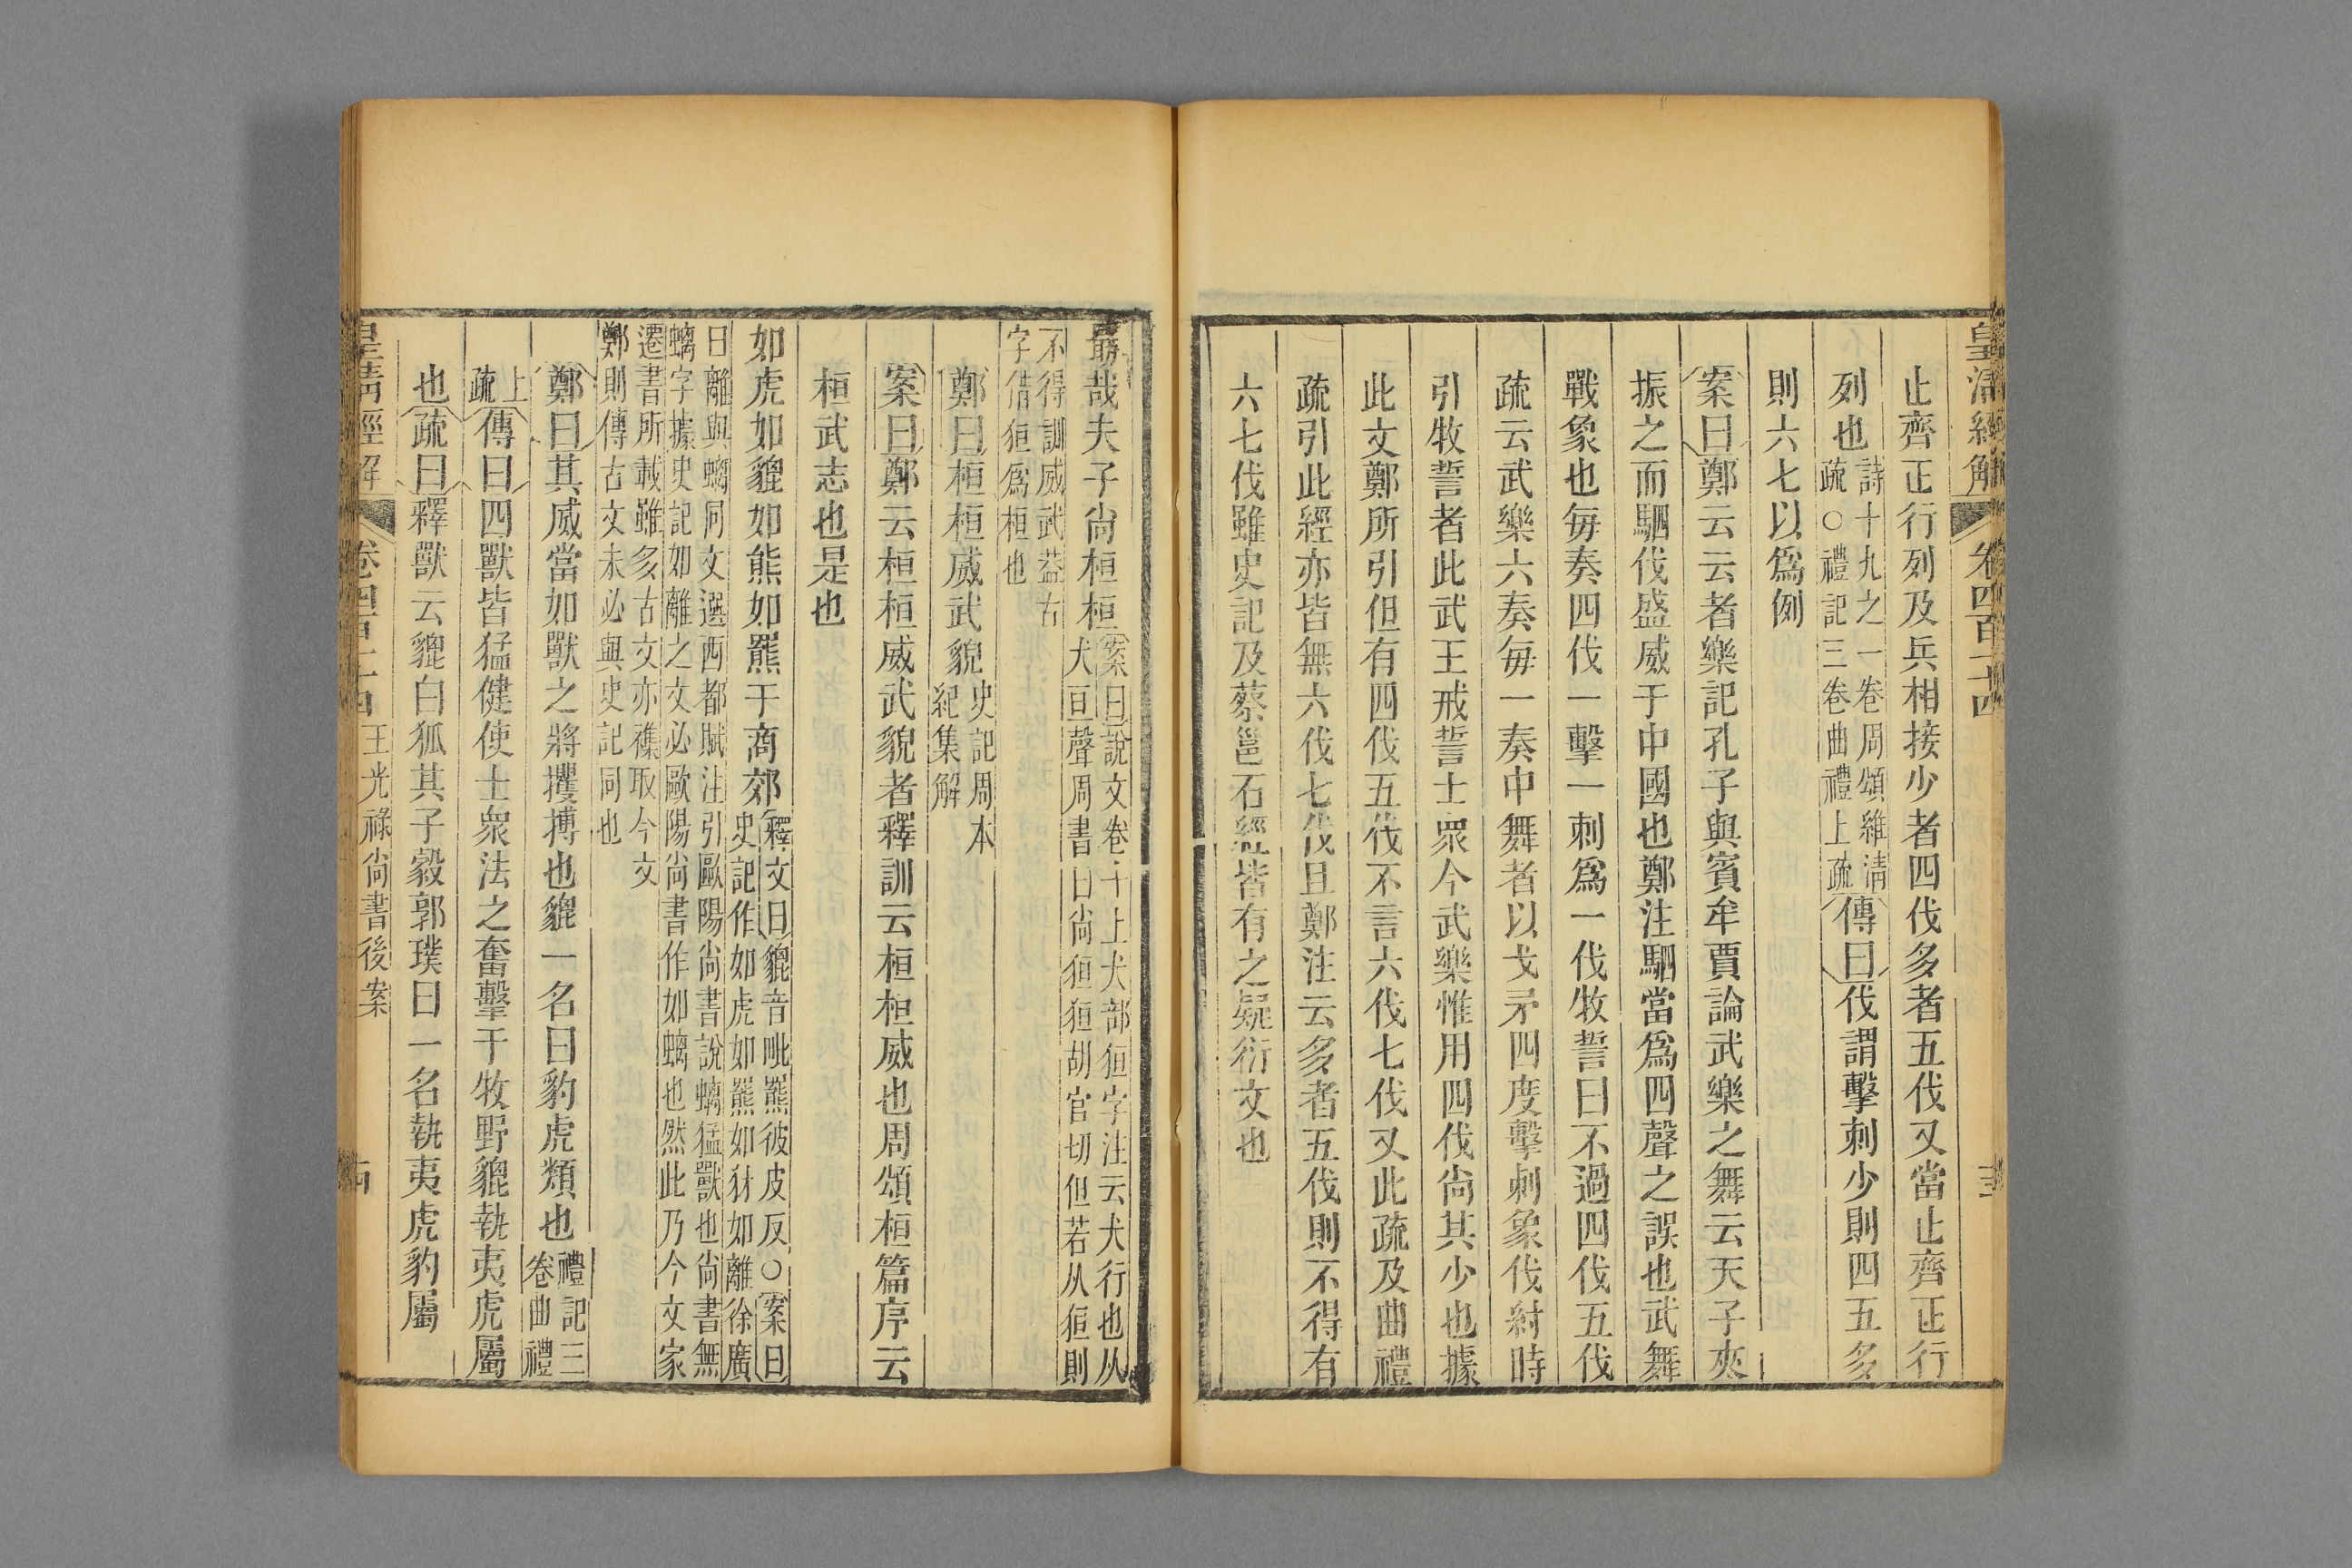 皇清經解 卷四百二十四
止齊正行列及兵相接少者四伐多者五伐又當止齊正行
列也詩十九之一卷周頌維清疏○禮記三卷曲禮上疏傳曰伐謂擊刺少則四五多
則六七以爲例
案曰鄭云云者樂記孔子與賓牟賈論武樂之舞云天子夾
振之而駟伐盛威于中國也鄭注駟當爲四聲之誤也武舞
戰象也每奏四伐一擊一刺爲一伐牧誓曰不過四伐五伐
疏云武樂六奏每一奏中舞者以戈矛四度擊刺象伐紂時
引牧誓者此武王戒誓士衆今武樂惟用四伐尙其少也據
此文鄭所引但有四伐五伐不言六伐七伐又此疏及曲禮
疏引此經亦皆無六伐七伐且鄭注云多者五伐則不得有
六七伐雖史記及蔡邕石經皆有之疑衍文也
勗哉夫子尙桓桓案曰說文卷十上犬部狟字注云犬行也从犬亘聲周書曰尙狟狟胡官切但若从狟則
不得訓威武葢古字借狟爲桓也
鄭曰桓桓威武貌史記周本紀集解
案曰鄭云桓桓威武貌者釋訓云桓桓威也周頌桓篇序云
桓武志也是也
如虎如貔如熊如羆于商郊釋文曰貔音毗羆彼皮反○案曰史記作如虎如羆如豺如離徐廣
曰離與螭同文選西都賦注引歐陽尙書說螭猛獸也尙書無螭字據史記如離之文必歐陽尙書作如螭也然此乃今文家
遷書所載雖多古文亦襍取今文鄭則傳古文未必與史記同也
鄭曰其威當如獸之將攫搏也貔一名曰豹虎類也禮記三卷曲禮
上疏傳曰四獸皆猛健使士衆法之奮擊于牧野貔執夷虎屬
也疏曰釋獸云貔白狐其子豰郭璞曰一名執夷虎豹屬
皇清經解 卷四百二十四 王光祿尙書後案